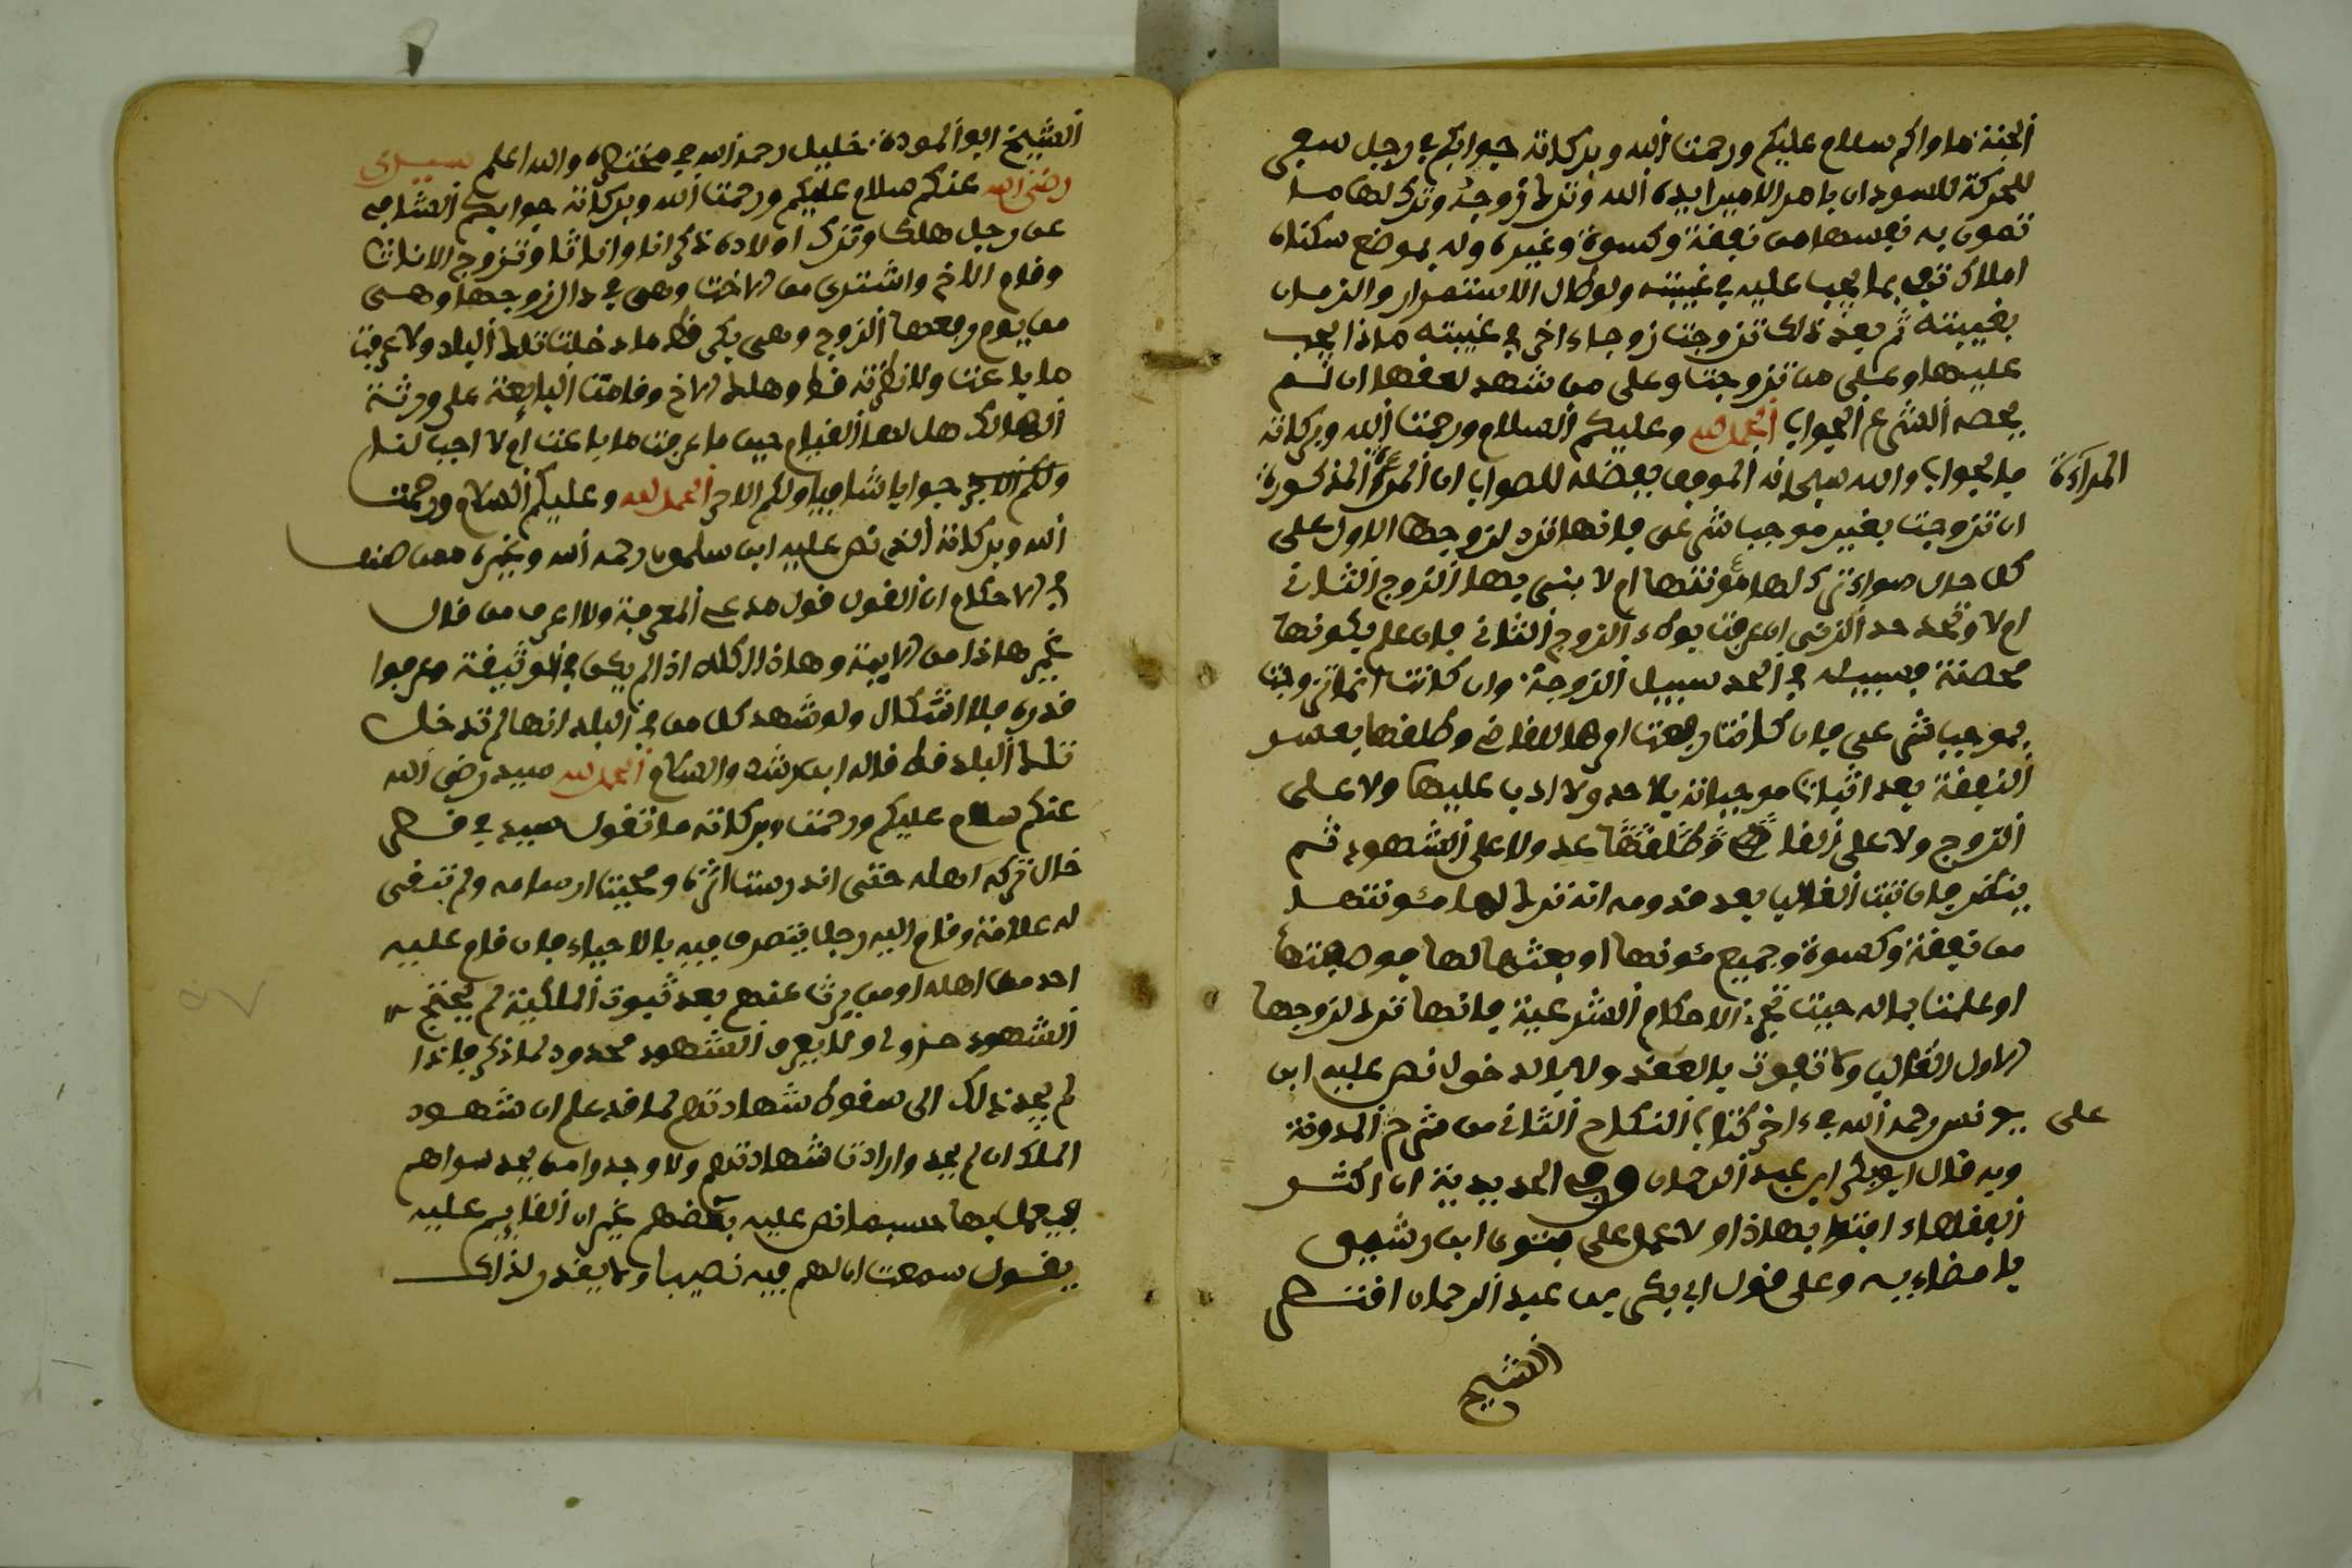 الجنة ماواكم سلام عليكم ورحمت الله وبركاته جوابكم في رجل سعى
للحركة للسودان بامر الامير ايده الله وترك زوجة وترك لها ما
تمون به نفسها من نفقة وكسوة وغيره وله بموضع سكناه
املاك توفي بما يجب عليه في غيبته ولو طال الاستمرار والزمان
بغيبته ثم بعد ذلك تزوجت زوجاء اخر في غيبته ماذا يجب
عليها وعلى من تزوجت وعلى من شهد لعقدها ان لم
يحصه الشرع الجواب الحمد لله وعليكم السلام ورحمت الله وبركاته
فالجواب والله سبحانه الموفق بفضله للصواب ان المرءة المذكورة
المراءة
ان تزوجت بغير موجب شرعي فانها ترد لزوجها الاول على
كل حال سواء ترك لها مؤنتها ام لا بنى بها الزوج الثاني
ام لا وتحد حد الزنى ان عرفت بوطء الزوج الثاني فان علم بكونها
محصنة فسبيله في الحد سبيل الزوجة وان كانت انما تزوجت
بموجب شرعي فان كانت رفعت امرها للقاضي وطلقها بعسر
النفقة بعد اثبات موجباته فلا حد ولا ادب عليها ولا على
الزوج ولا على القاضي وطلقها عد ولا على الشهود ثم
ينظر فان ثبت الغالب بعد قدومه انه ترك لها مئونتها
من نفقة وكسوة وجميع مئونها او بعثها لها فوصلتها
او علمت بماله حيث تجري الاحكام الشرعية فانها ترد لزوجها
الاول الغالب ولا تفوت بالعقد ولا بالدخول نص عليه ابن
يونس رحمه الله في ءاخر كتاب النكاح الثاني من شرح المدونة
على
وبه قال ابو بكر ابن عبد الرحمان وفي المديدية ان اكثر
الفقهاء افتوا بهاذا ولا عمل على فتوى ابن رشيق
بامضاءيه وعلى قول ابي بكر بن عبد الرحمان اقتصر
الشيخ
الشيخ ابو المودة خليل رحمه الله في مختصره والله اعلم سيدي
رضي الله عنكم سلام عليكم ورحمت الله وبركاته جوابكم الشافي
عن رجل هلك وترك اولاده ذكرانا واناثا وتزوج الاناث
وقام الاخ واشترى من الاخت وهي في دار زوجها وهي
من يوم رفعها الزوج وهي بكر قط ما دخلت تلك البلد ولا عرفت
ما باعت ولا نظرته قط وهلك الاخ وقامت البايعة على ورثة
الهالك هل لها القيام حين ما عرفت ما باعت ام لا اجب لنا
جوابا شافيا ولكم الاجر الحمد لله وعليكم السلام ورحمت
الله وبركاته الذي نص عليه ابن سلمون رحمه الله وغيره ممن صنف
في الاحكام ان القول قول مدعي المعرفة ولا اعرف من قال
غير هاذا من الايمة وهاذا كله اذا لم يكن في الوثيقة عرفوا
قدره فلا اشكال ولو شهد كل من في البلد انها لم تدخل
تلك البلد قط قاله ابن رشد والسلام الحمد لله سيد رضي الله
عنكم سلام عليكم ورحمت وبركاته ما تقول سيد في قصر
خال تركه اهله حتى اندرست اثره ومحيت ارسامه ولم تبقى
له علامة وقام اليه رجل يتصرف فيه بالاحياء فان قام عليه
احد من اهله او من يرث عنهم بعد ثبوت الملكية لم يحتج
الشهود حدود ولا يعرف الشهود محدود لما ذكر فاذا
لم يجد ذلك الى سقوط شهادتهم لما قد علم ان شهود
الملك ان لم يجد وارادت شهادتهم ولا وجدوا من يجد سواهم
فيعمل بها حسبما نص عليه بعضهم غير ان القايم عليه
يقول سمعت ان لهم فيه نصيبا ولا يقدر لذلك